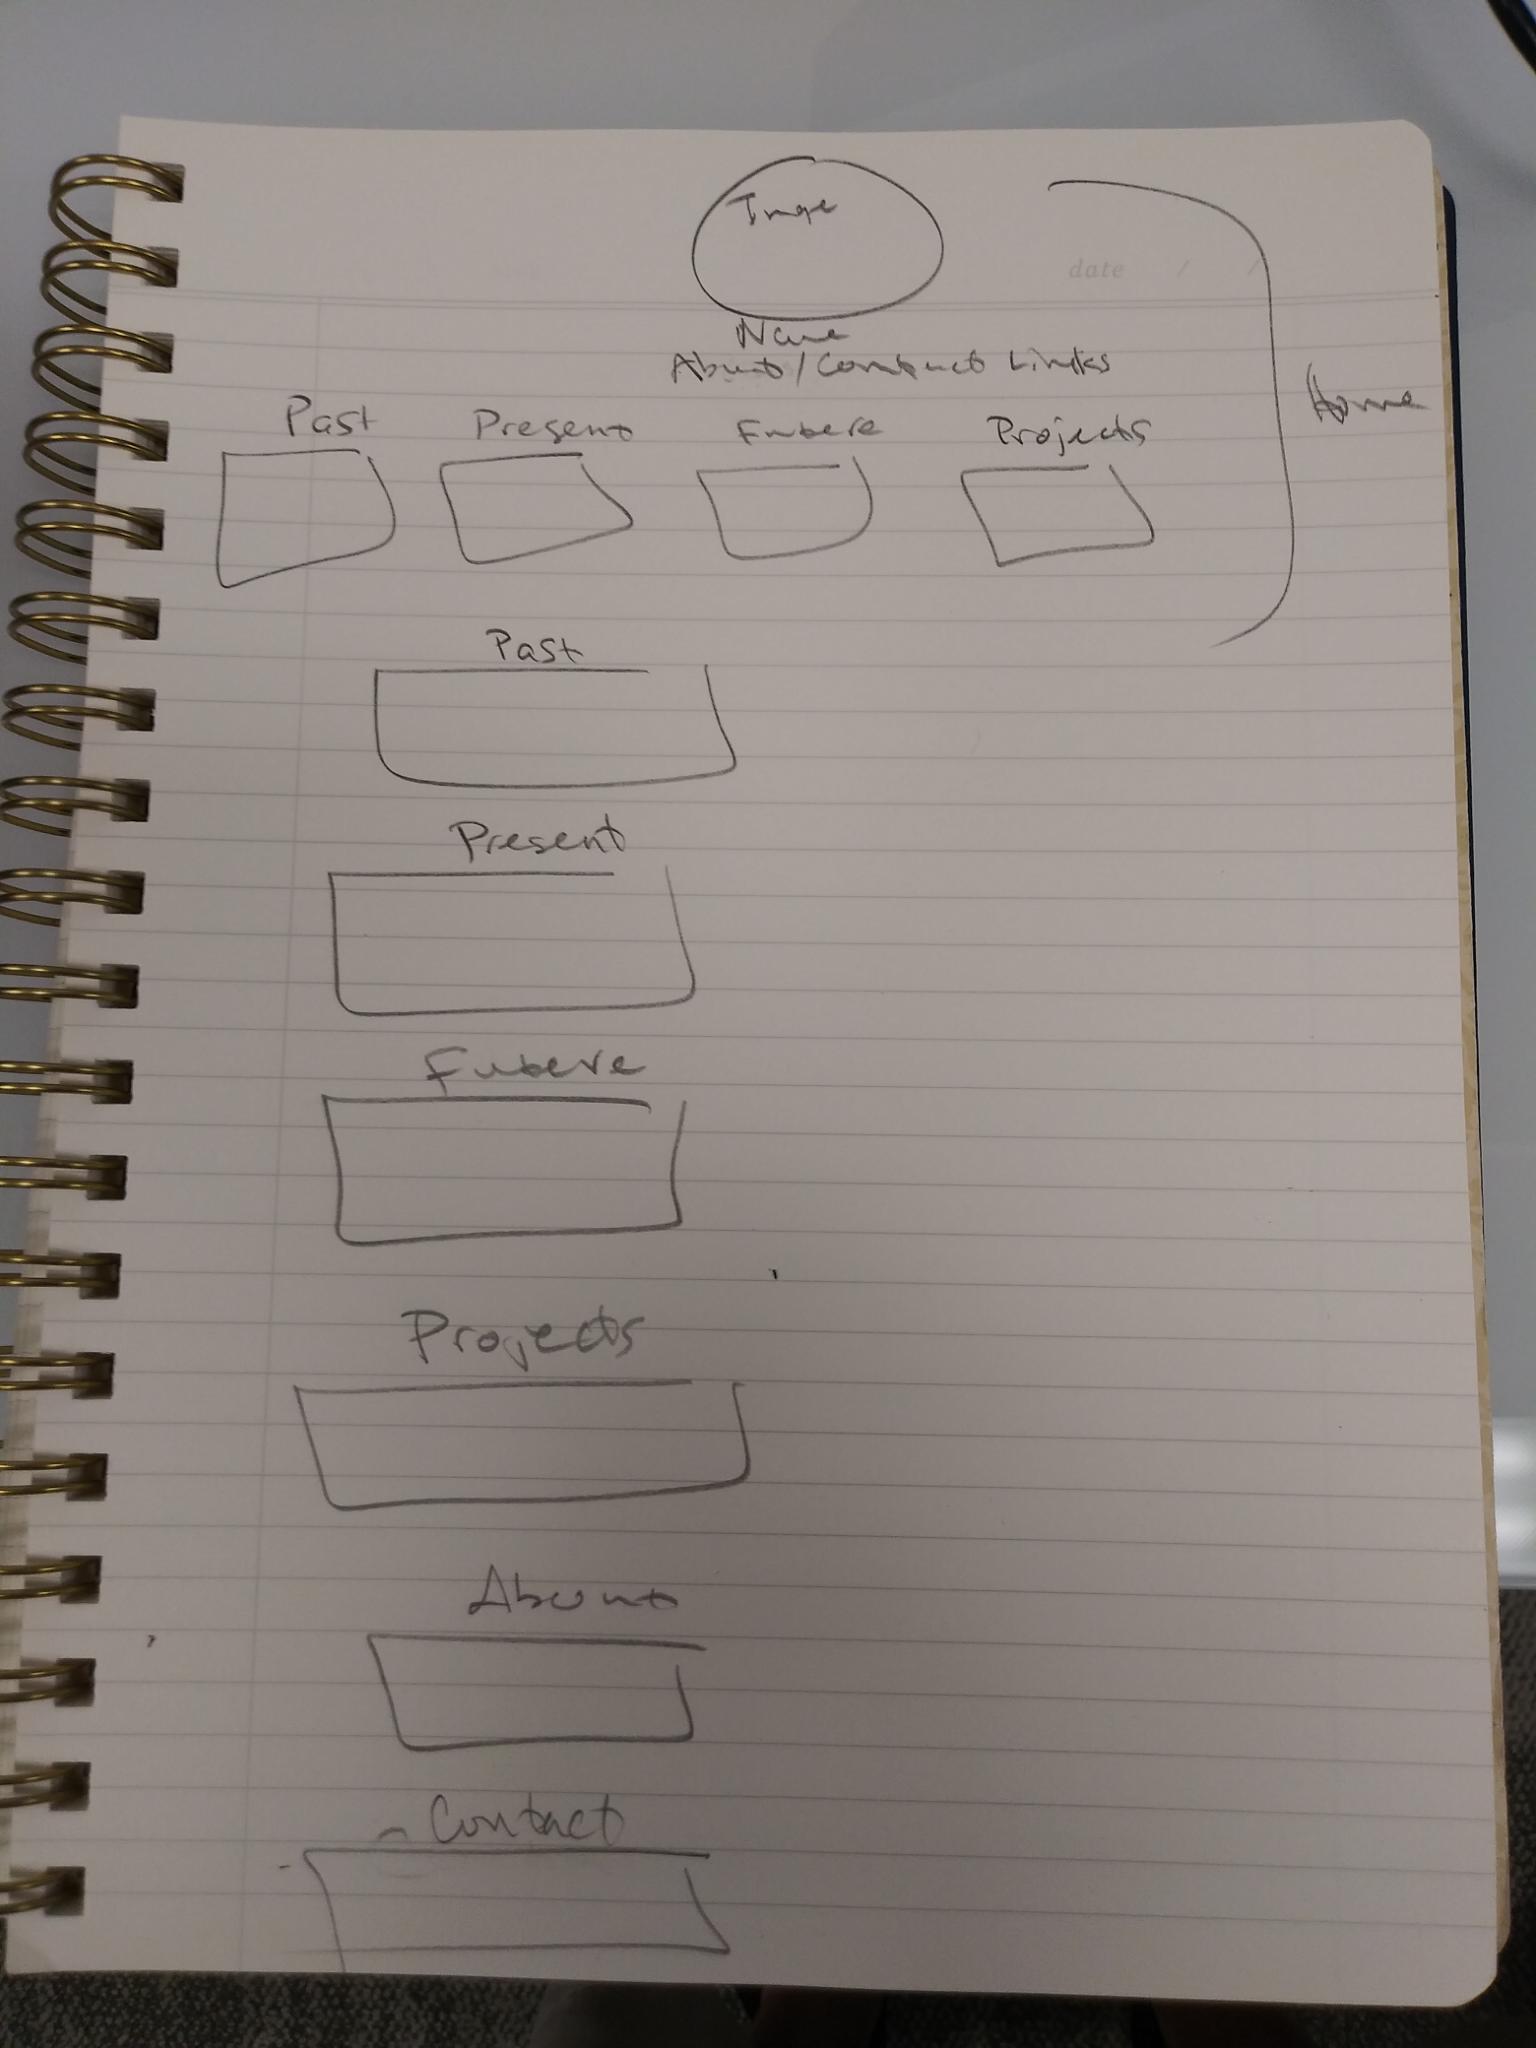 Image
date / /
Name
About/Contact Links
Home
Past Present Future Projects
Past
Present
Future
Projects
About
Contact